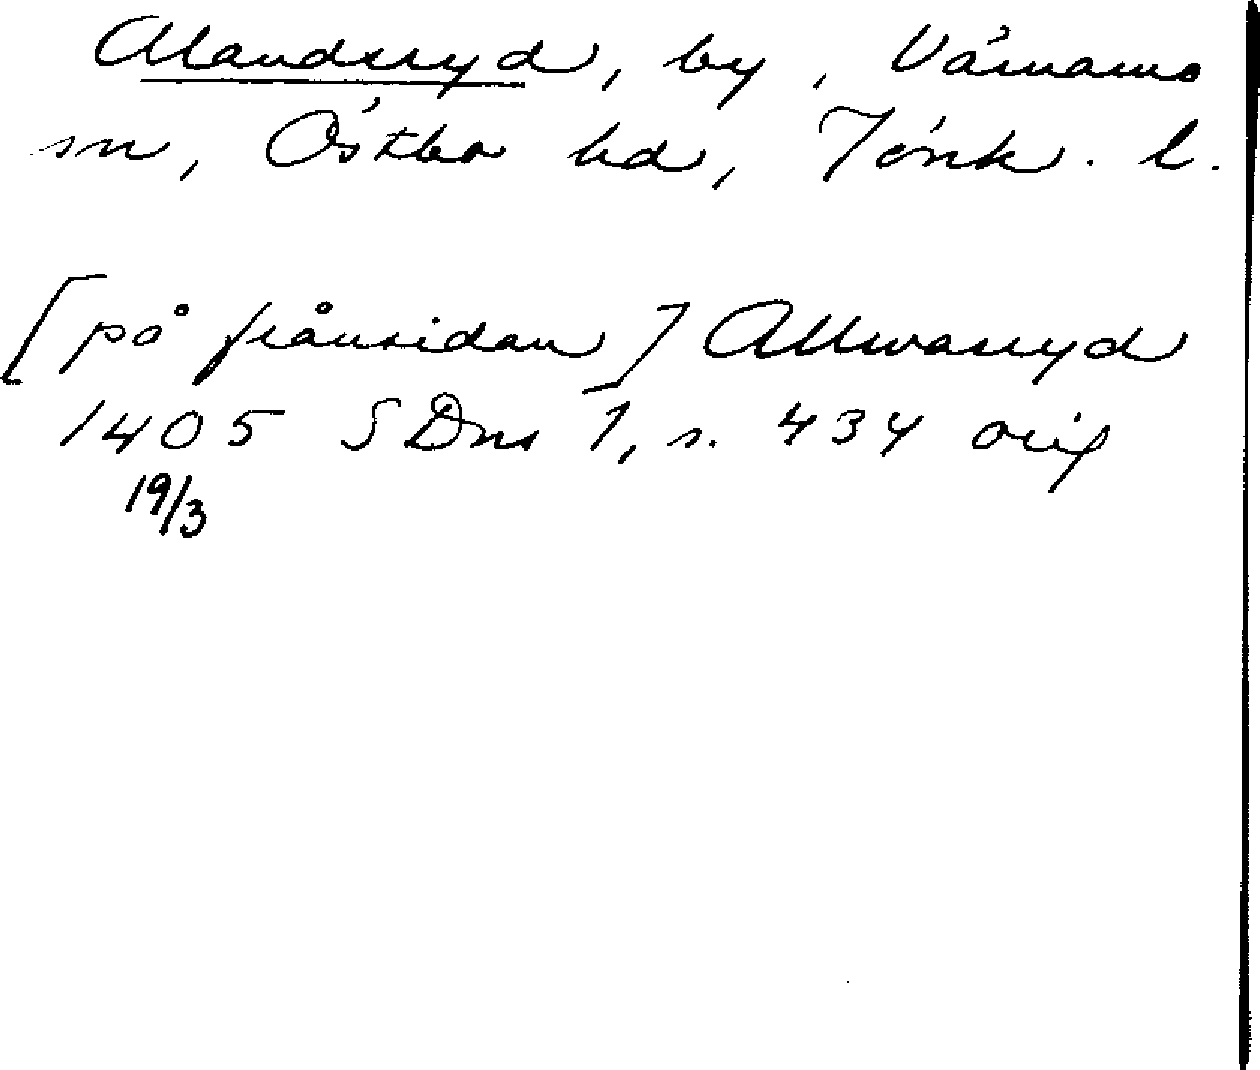 Alandsryd, by, Värnamo
sn, Östbo hd, Jönk. l.
[på frånsidan] Allwarsryd
1405 SDns 1, s. 434 orig
19/3